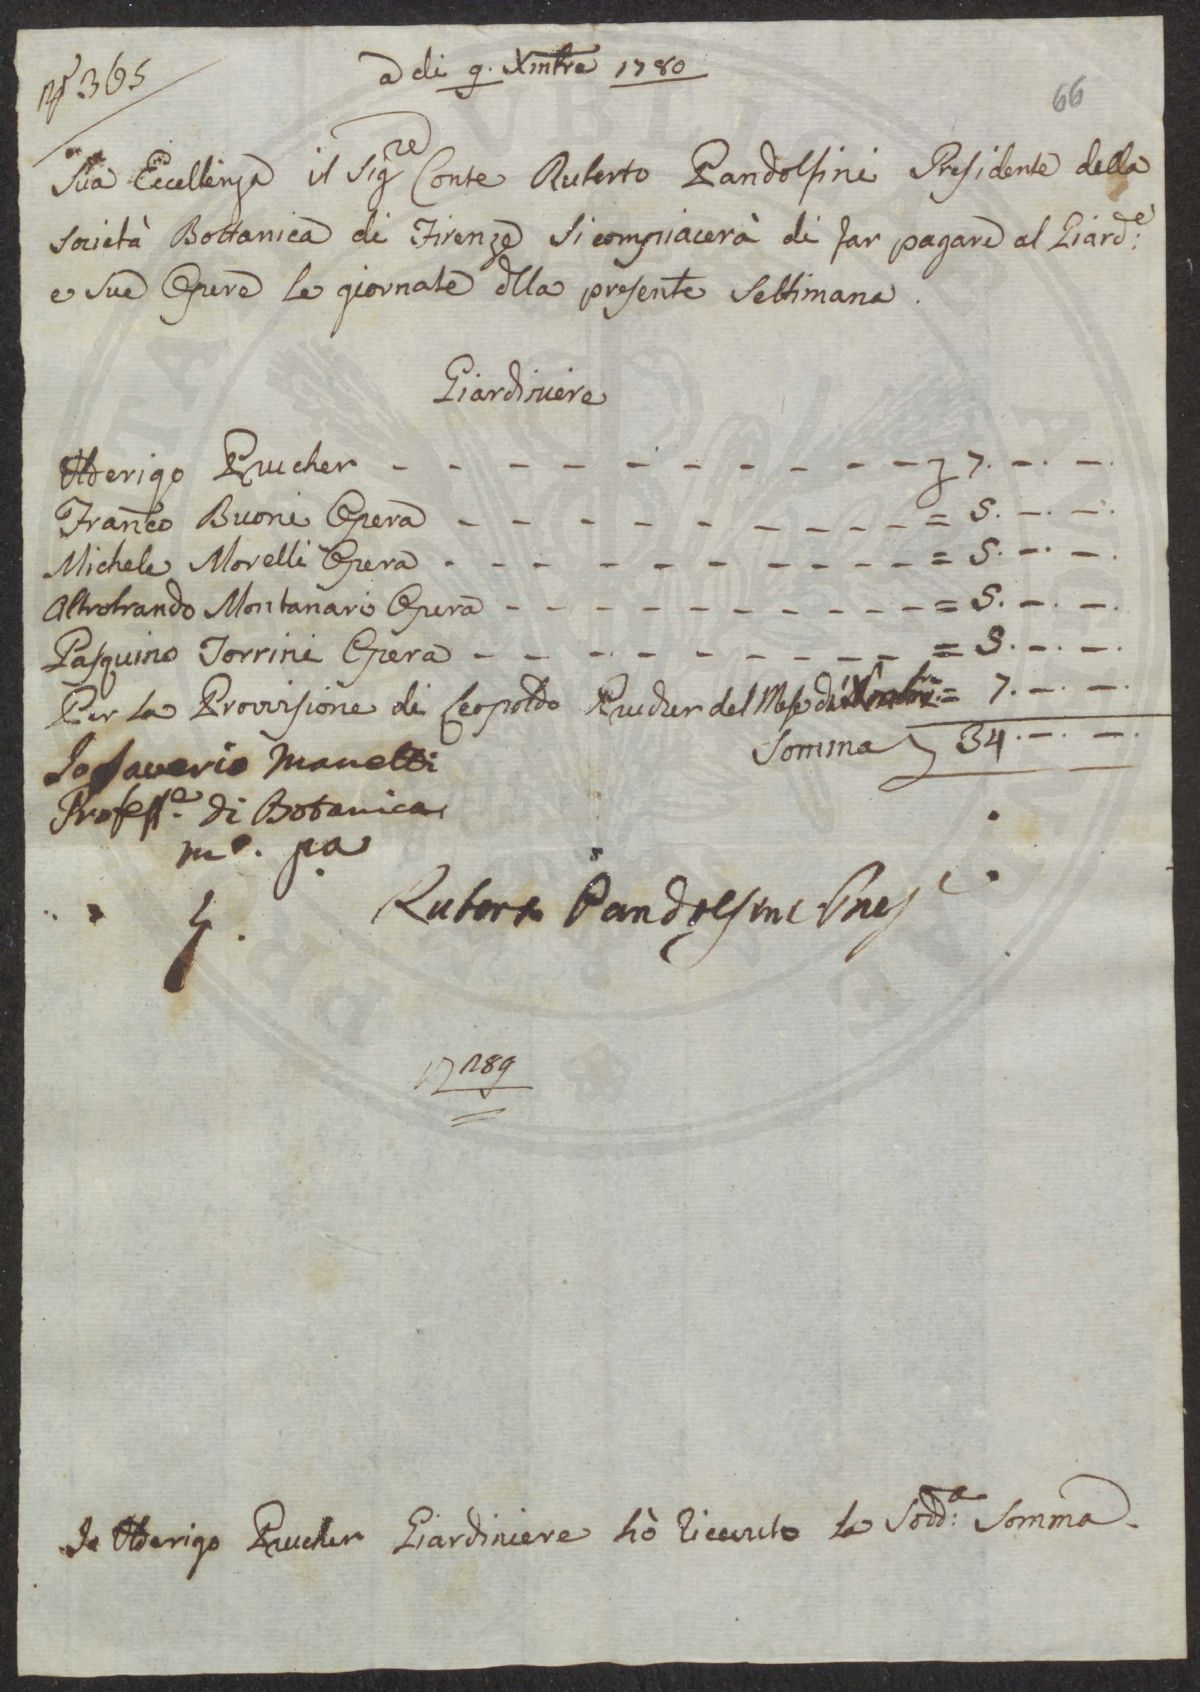 N° 365
a di 9. Xmbre 1780
66
Sua Eccellenza il Sig.re Conte Ruberto Pandolfini Presidente della
Società Bottanica di Firenze si compiacerà di far pagare al Giard.e:
e sue Opere le giornate dlla presente Settimana.
Giardiniere
Ulderigo Prucher - - - - - - - - - - - 7. -. -.
Franco Buoni Opera - - - - - - - - - = 5. -. -.
Michele Morelli Opera - - - - - - - - - = 5. -. -.
Altobrando Montanari Opera - - - - - - - - = 5. -. -.
Pasquino Torrini Opera - - - - - - - - = 5. -. -.
Per la Provvisione di Leopoldo Prucher del Mese di = 7. -. -.
Somma 34. -. -.
Io Saverio Manetti
Profess.e di Botanica
m.o p.a
Ruberto Pandolfini Pres
289
Io Ulderigo Prucher Giardiniere hò ricevuto la Sodd.a: Somma